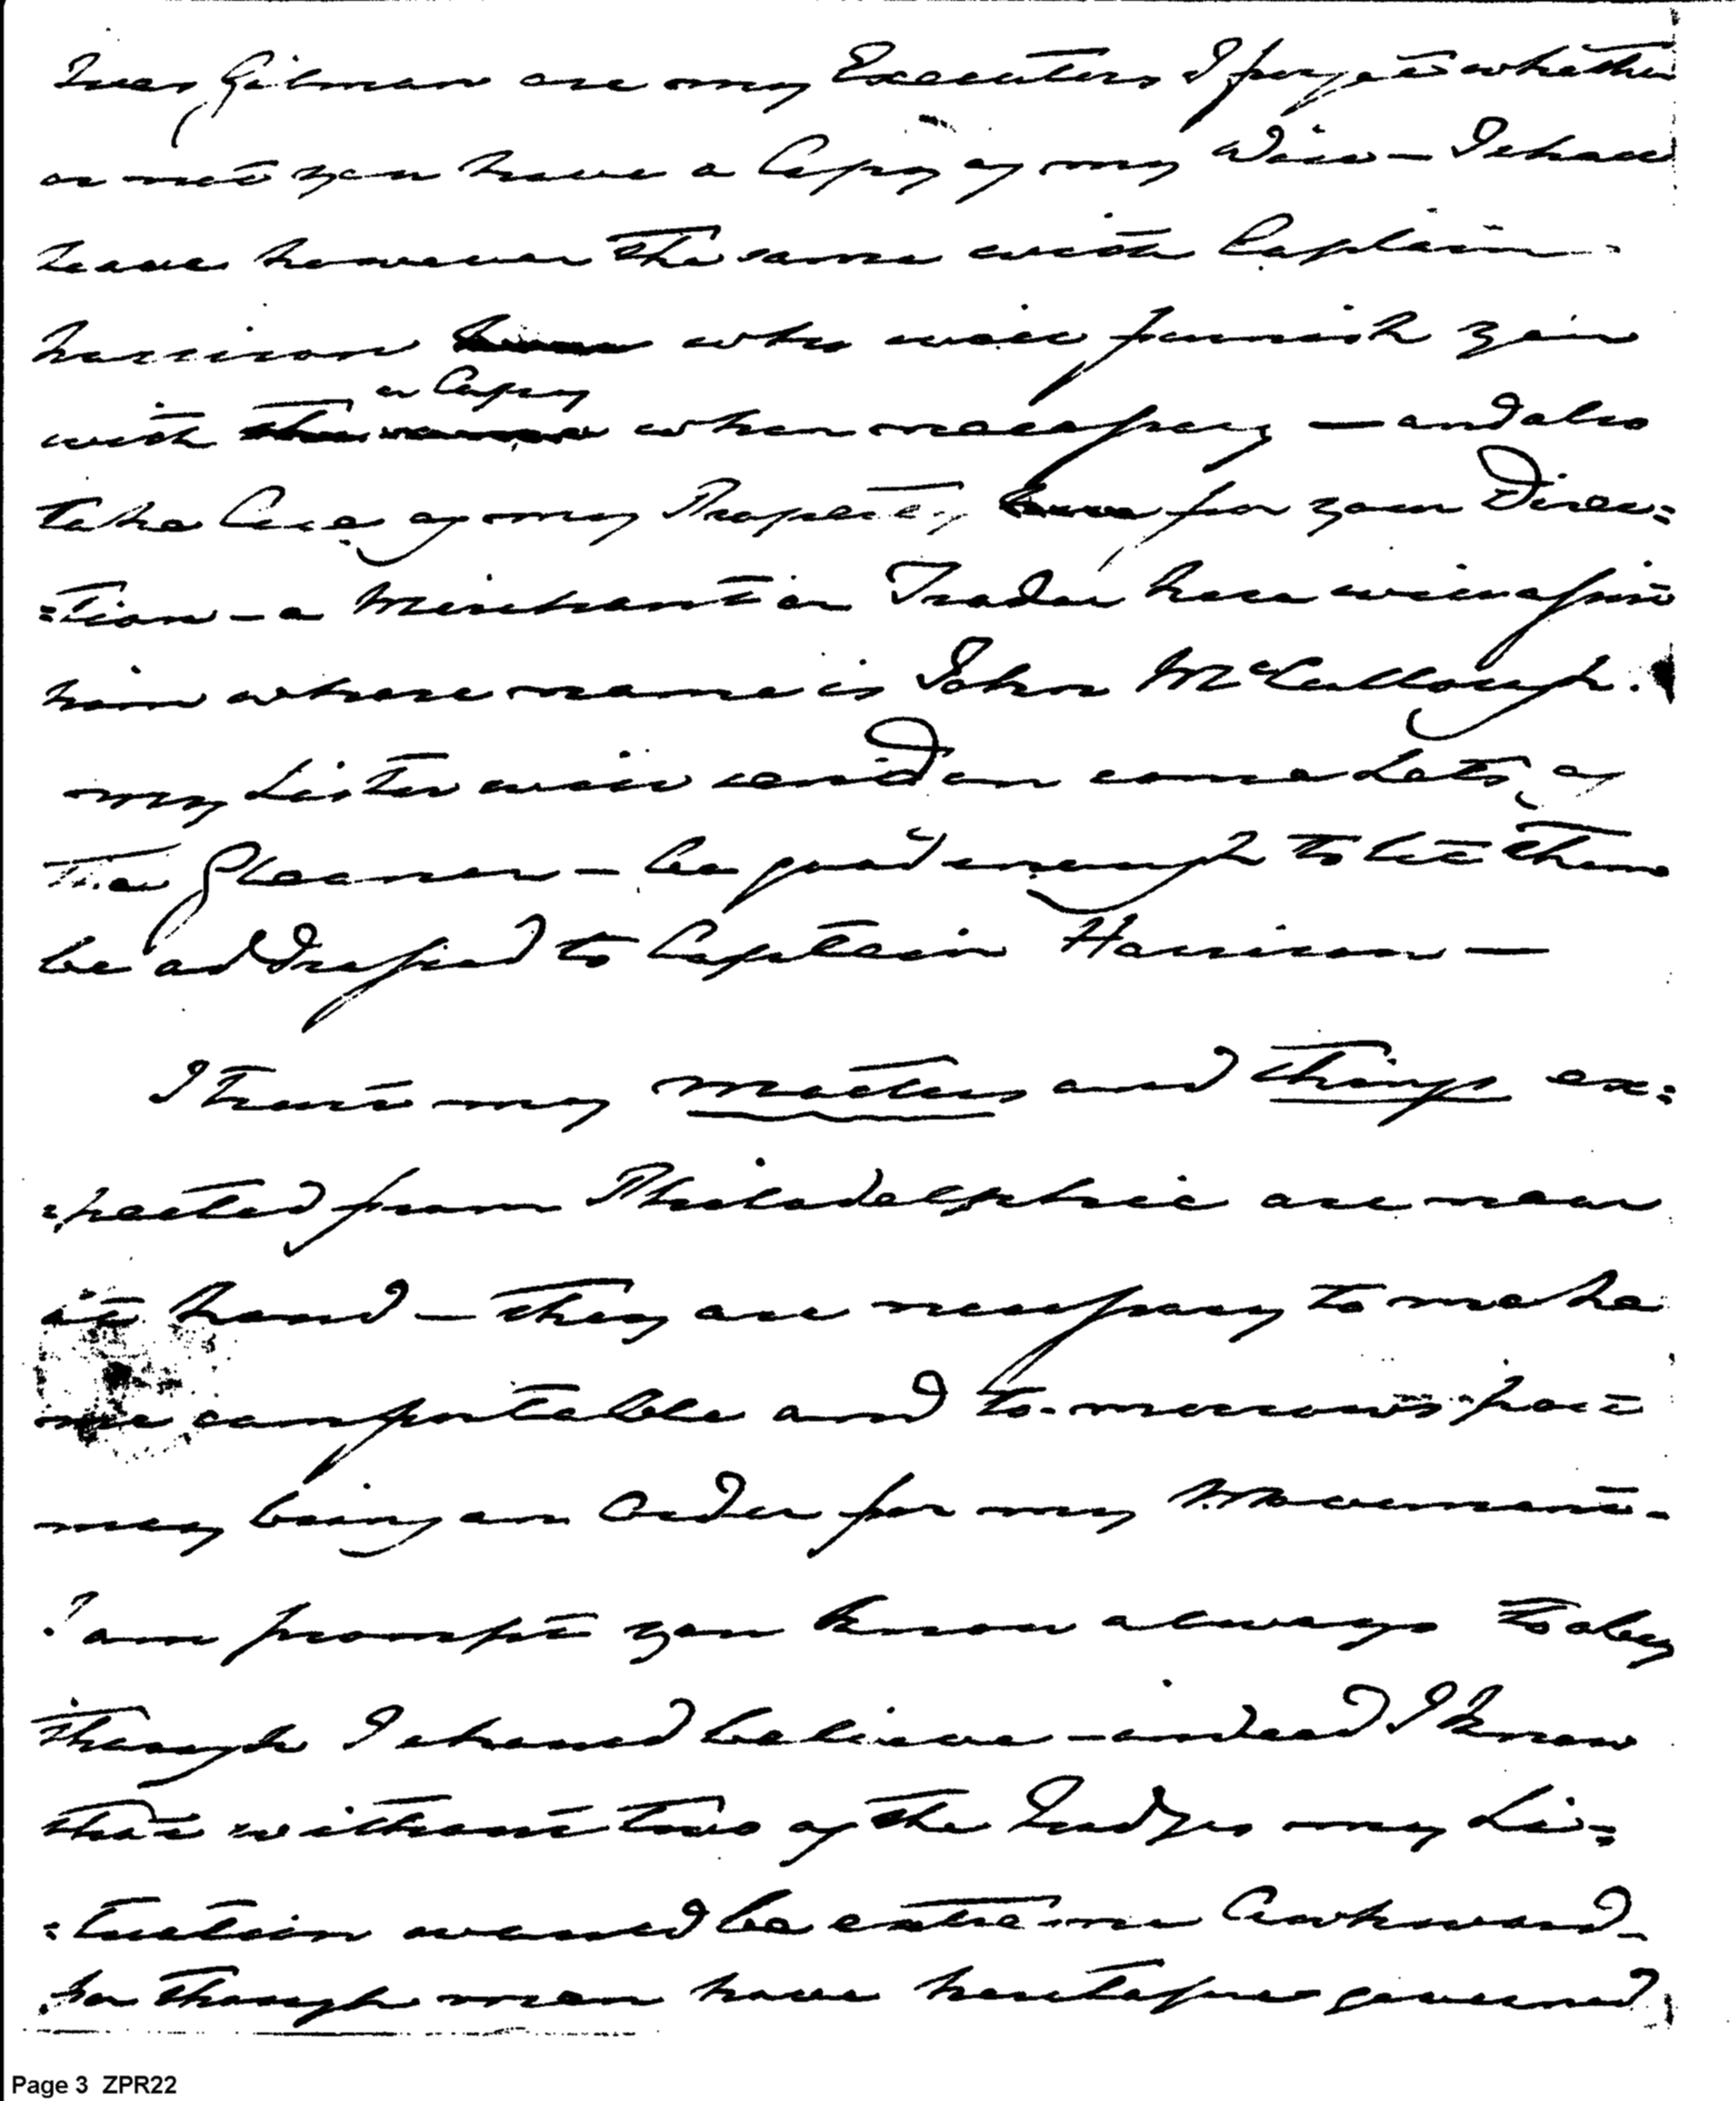 Ives Gilman are my Executors I forget whether
or not you have a Copy of my Will — I shall
leave however the same with Captain
harrison who will furnish you
with a Copy when necessary — and also
take Care of my Property for your Direc=
=tion — a Merchant or Trader here will assist
him whose name is John McCullough.
my Sister will send on some Setts of
The Gleaner — be good enough to let them
be addressed to Captain Harrison —
I trust my matters and things ex=
=pected from Philadelphia are near
at hand — they are necessary to make
me comfortable and to-morrow's post
may bring an Order for my Movement -
I am prompt you know always to obey
though I should believe — indeed I know
that without two of the Judges my Sit=
=tuation would be extreme Awkward -
for though men have heretofore governed
Page 3 ZPR22